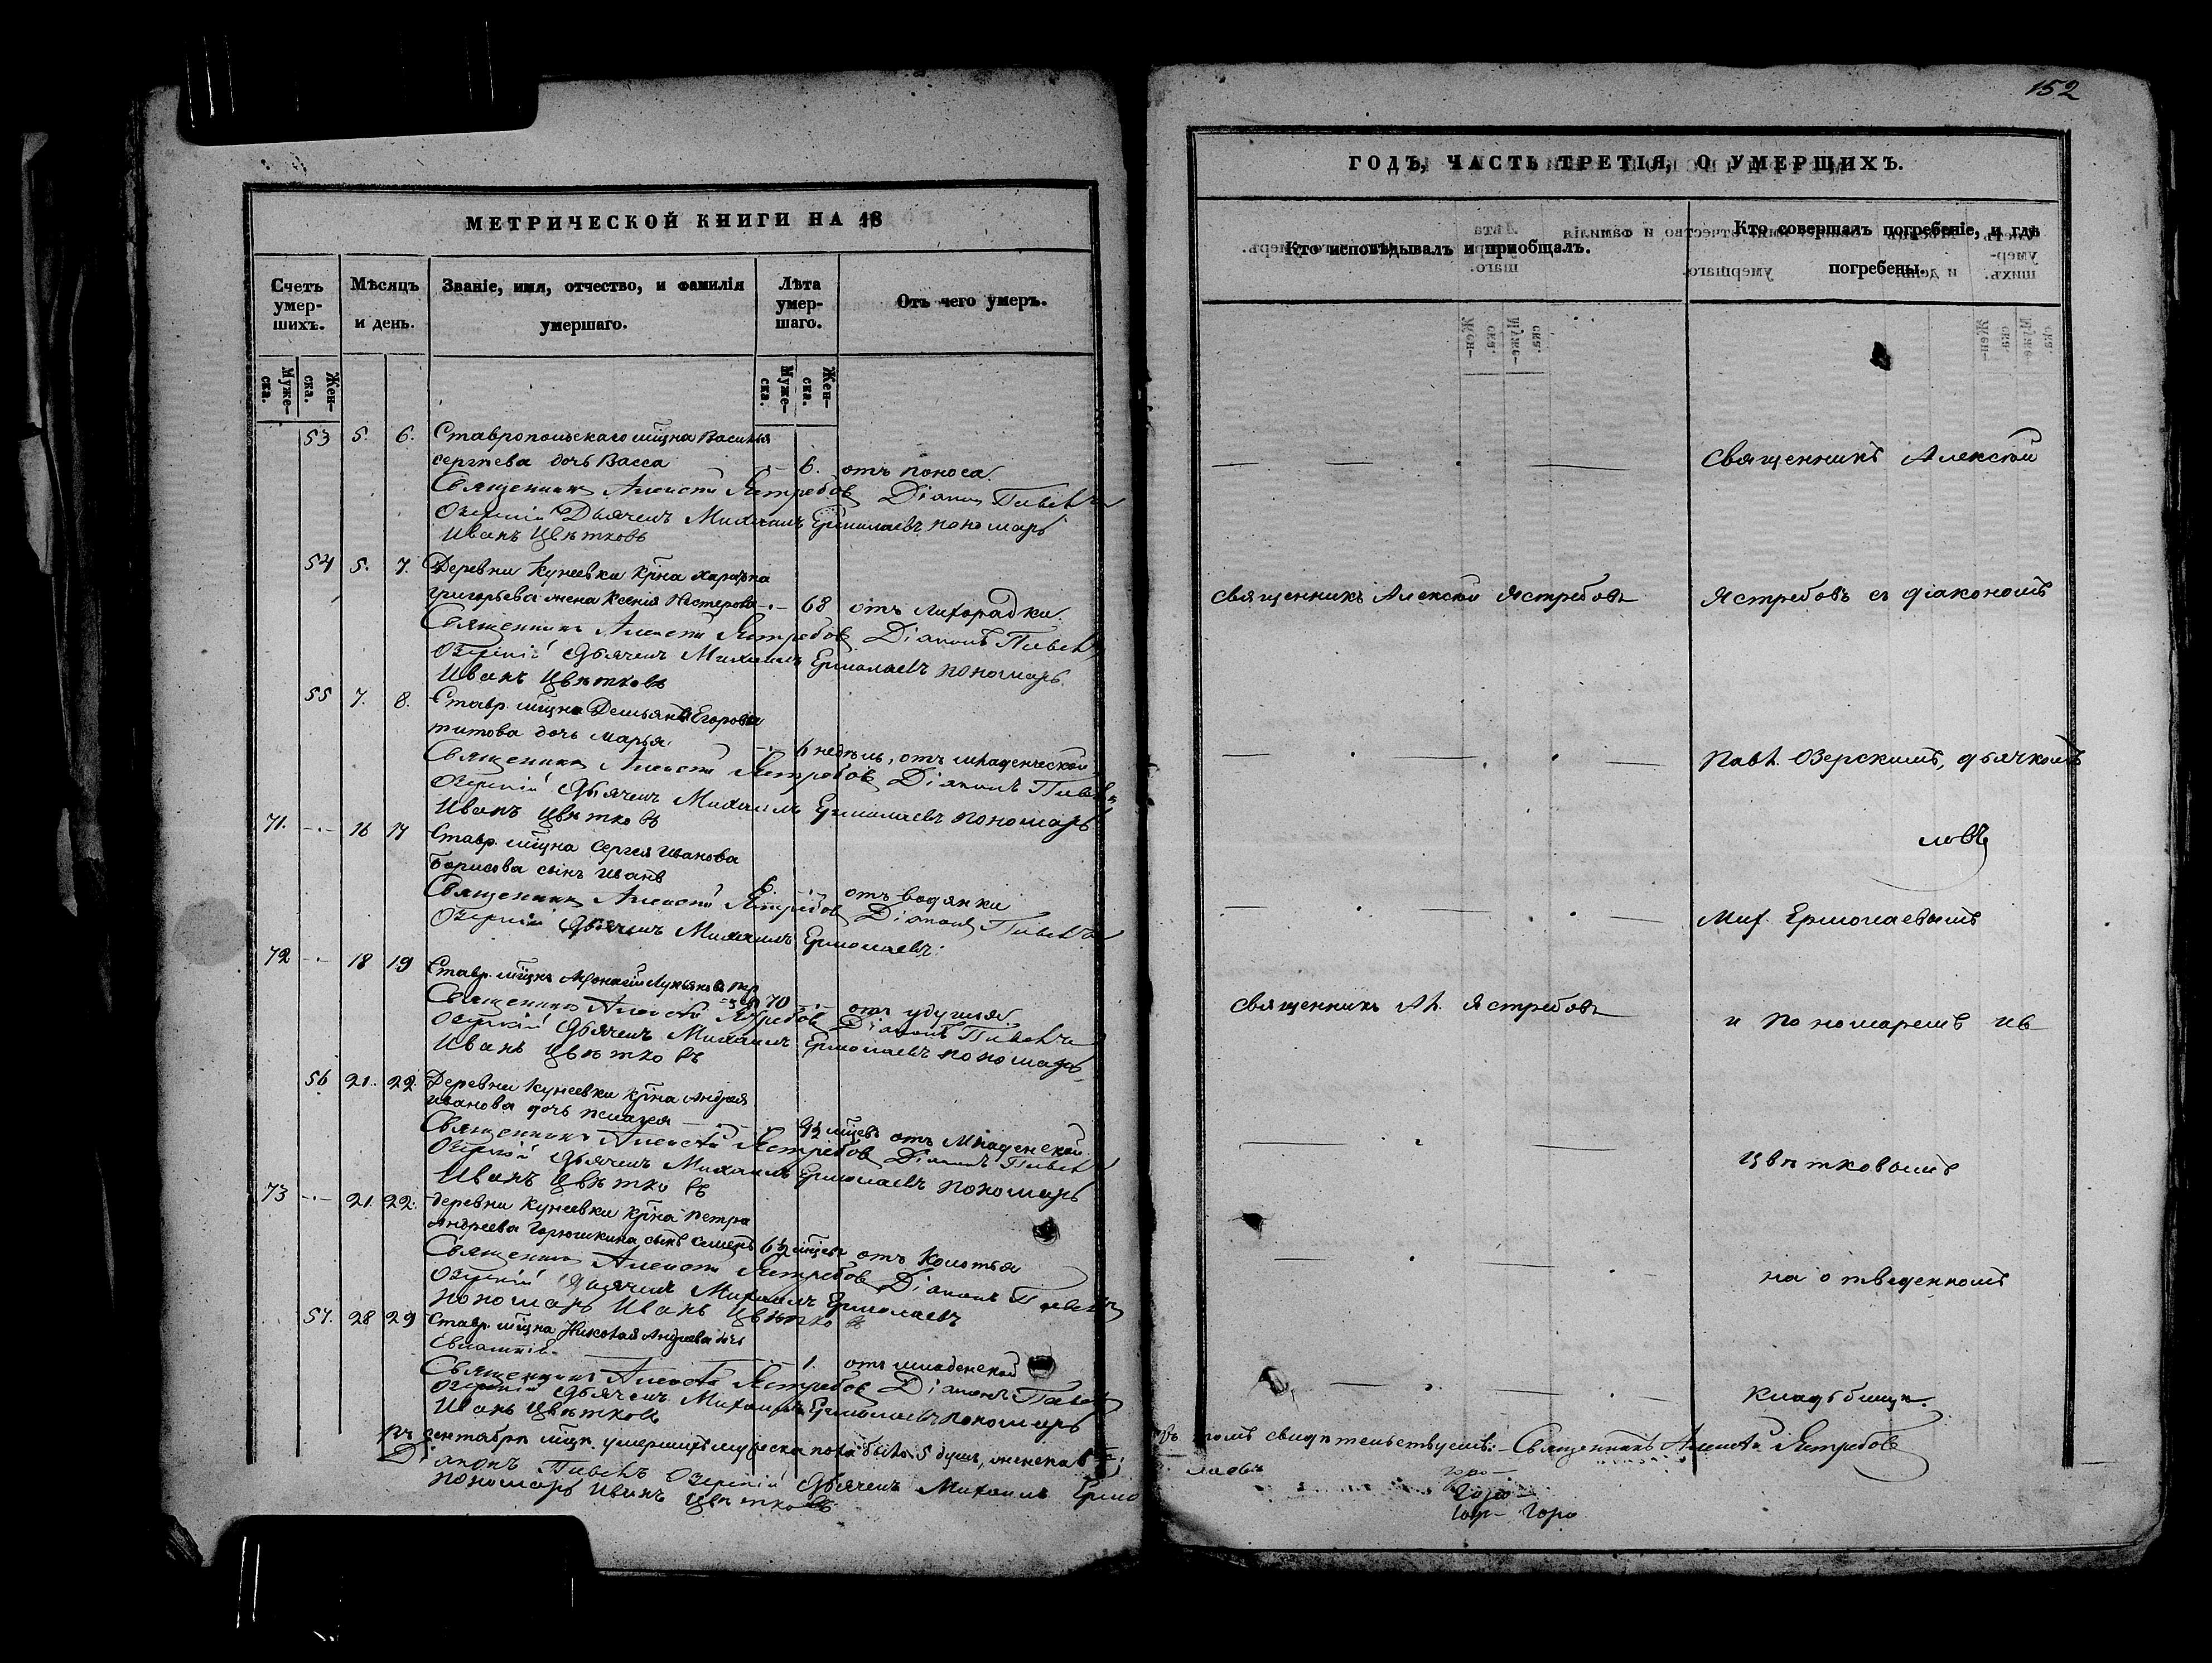 МЕТРИЧЕСКОЙ КНИГИ НА 18
Счетъ умер-шихъ.
Мѣсяцъ и день.
Званіе, имя, отчество, и фамилія умершаго.
Лѣта умер-шаго.
Отъ чего умеръ.
Муже-ска.
Жен-ска.
Муже-ска.
Жен-ска.
53 5. 6. Ставропольскаго мщна Василья
Сергѣева дочь Васса 6. отъ поноса.
Священникъ Алексѣй Ястребовъ Діаконъ Павелъ
Озерскій Дьячекъ Михаилъ Ермолаевъ пономарь
Иванъ Цвѣтковъ
54 5. 7. Деревни Кунеевки крна
Григорьева жена Ксенія Нестерова 68 отъ лихорадки.
Священникъ Алексѣй Ястребовъ Діаконъ Павелъ
Озерскій Дьячекъ Михаилъ Ермолаевъ пономарь
Иванъ Цвѣтковъ
55 7. 8. Ставр. мщна Демьяна Егорова
Титова дочь Марья 6 недѣль, отъ младенческой
Священникъ Алексѣй Ястребовъ Діаконъ Павелъ
Озерскій Дьячекъ Михаилъ Ермолаевъ пономарь
Иванъ Цвѣтковъ
71. 16 17 Ставр. мщна Сергея Иванова
Борисова сынъ Иванъ 6. отъ водянки
Священникъ Алексѣй Ястребовъ Діаконъ Павелъ
Озерскій Дьячекъ Михаилъ Ермолаевъ
72 18 19 Ставр. мщнъ Афонасій Лукьяновъ
70 отъ удушья
Священникъ Алексѣй Ястребовъ Діаконъ Павелъ
Озерскій Дьячекъ Михаилъ Ермолаевъ пономарь
Иванъ Цвѣтковъ
56 21. 22 Деревни Кунеевки крна Андрея
Иванова дочь Пелагея мцевъ отъ Младенской
Священникъ Алексѣй Ястребовъ Діаконъ Павелъ
Озерскій Дьячекъ Михаилъ Ермолаевъ пономарь
Иванъ Цвѣтковъ
73 21. 22. деревни Кунеевки крна Петра
Андреева Горюшкина сынъ Семенъ мцевъ отъ колотья
Священникъ Алексѣй Ястребовъ Діаконъ Павелъ
Озерскій Дьячекъ Михаилъ Ермолаевъ
пономарь Иванъ Цвѣтковъ
57. 28 29 Ставр. мщна Николая Андреева дочь
1. отъ младенской
Священникъ Алексѣй Ястребовъ Діаконъ Павелъ
Озерскій Дьячекъ Михаилъ Ермолаевъ пономарь
Иванъ Цвѣтковъ
Въ сентябрѣ мцѣ умершихъ мужеска пола было 5 душъ, женска
Діаконъ Павелъ Озерскій Дьячекъ Михаилъ Ермо
пономарь Иванъ Цвѣтковъ
152
ГОДЪ, ЧАСТЬ ТРЕТІЯ, О УМЕРШИХЪ.
Кто исповѣдывалъ и пріобщалъ.
Кто совершалъ погребеніе, и гдѣ погребены.
Священникъ Алексѣй
Священникъ Алексѣй Ястребовъ
Ястребовъ съ діакономъ
Павл. Озерскимъ, дьячкомъ
ловъ
Мих. Ермолаевымъ
Священникъ Ал. Ястребовъ
и пономаремъ Ив
Цвѣтковымъ
на отведенномъ
кладбищѣ.
Въ томъ свидѣтельствуемъ: Священникъ Алексѣй Ястребовъ
лаевъ
Горо
Горо
Гор- Горо